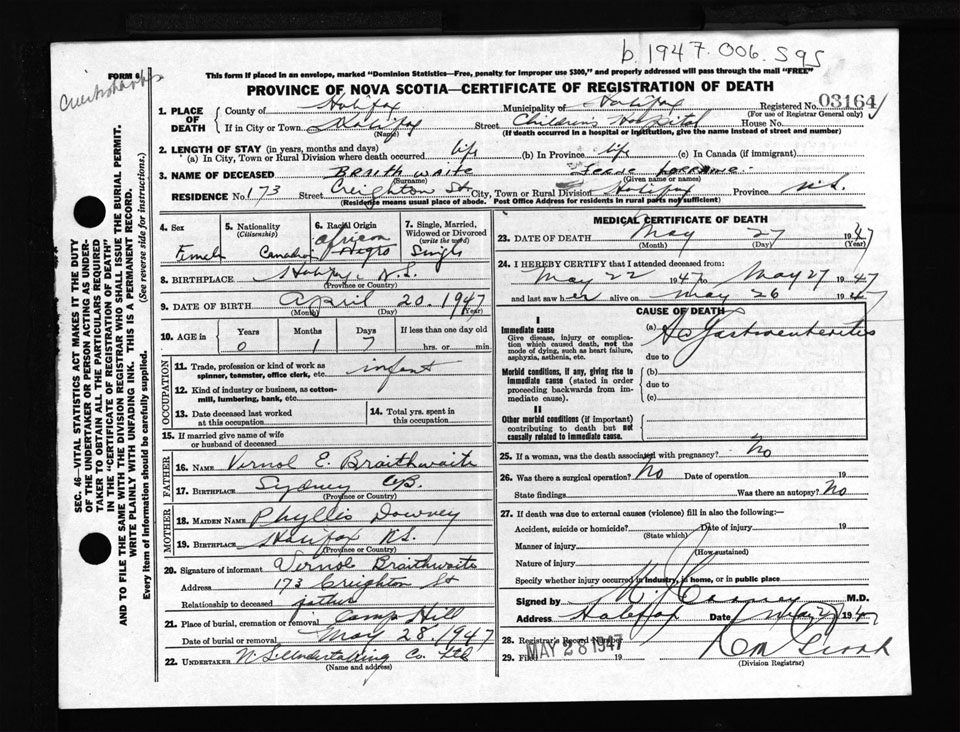 b. 1947. 006. 595
FORM 6
This form if placed in an envelope, marked "Dominion Statistics—Free, penalty for improper use $300," and properly addressed will pass through the mail "FREE"
PROVINCE OF NOVA SCOTIA—CERTIFICATE OF REGISTRATION OF DEATH
1. PLACE OF DEATH County of Halifax Municipality of Halifax Registered No. 03164
(For use of Registrar General only)
If in City or Town Halifax Street Children's Hospital House No.
(Name) (If death occurred in a hospital or institution, give the name instead of street and number)
2. LENGTH OF STAY (in years, months and days)
(a) In City, Town or Rural Division where death occurred life (b) In Province life (c) In Canada (if immigrant)
3. NAME OF DECEASED Braithwaite Jeane Lorraine
(Surname) (Given name or names)
RESIDENCE No. 173 Street Creighton St City, Town or Rural Division Halifax Province N.S.
(Residence means usual place of abode. Post Office Address for residents in rural parts not sufficient)
4. Sex Female
5. Nationality (Citizenship) Canadian
6. Racial Origin African Negro
7. Single, Married, Widowed or Divorced (write the word) Single
8. BIRTHPLACE Halifax N.S.
(Province or Country)
9. DATE OF BIRTH April 20. 1947
(Month) (Day) (Year)
10. AGE in Years Months Days If less than one day old
0 1 7 hrs. or min.
OCCUPATION
11. Trade, profession or kind of work as spinner, teamster, office clerk, etc. infant
12. Kind of industry or business, as cotton-mill, lumbering, bank, etc.
13. Date deceased last worked at this occupation
14. Total yrs. spent in this occupation
15. If married give name of wife or husband of deceased
FATHER
16. NAME Vernol E. Braithwaite
17. BIRTHPLACE Sydney CB.
(Province or Country)
MOTHER
18. MAIDEN NAME Phyllis Downey
19. BIRTHPLACE Halifax N.S.
(Province or Country)
20. Signature of informant Vernol Braithwaite
Address 173 Creighton St
Relationship to deceased father
21. Place of burial, cremation or removal Camp Hill
Date of burial or removal May 28. 1947
22. UNDERTAKER N.S. Undertaking Co. Ltd
(Name and address)
MEDICAL CERTIFICATE OF DEATH
23. DATE OF DEATH May 27 1947
(Month) (Day) (Year)
24. I HEREBY CERTIFY that I attended deceased from:
May 22 1947 to May 27 1947
and last saw her alive on May 26 1947
CAUSE OF DEATH
I
Immediate cause
Give disease, injury or complication which caused death, not the mode of dying, such as heart failure, asphyxia, asthenia, etc.
(a) Ac Gastroenteritis
due to
Morbid conditions, if any, giving rise to immediate cause (stated in order proceeding backwards from immediate cause).
(b)
due to
(c)
II
Other morbid conditions (if important) contributing to death but not causally related to immediate cause.
25. If a woman, was the death associated with pregnancy? No
26. Was there a surgical operation? No Date of operation 19
State findings Was there an autopsy? No
27. If death was due to external causes (violence) fill in also the following:—
Accident, suicide or homicide? Date of injury 19
(State which)
Manner of injury
(How sustained)
Nature of injury
Specify whether injury occurred in industry, in home, or in public place
Signed by M.D.
Address Halifax Date May 27 1947
28. Registrar's Record Number
29. Filed MAY 28 1947 19
(Division Registrar)
SEC. 46—VITAL STATISTICS ACT MAKES IT THE DUTY
OF THE UNDERTAKER OR PERSON ACTING AS UNDER-
TAKER TO OBTAIN ALL THE PARTICULARS REQUIRED
IN THE "CERTIFICATE OF REGISTRATION OF DEATH"
AND TO FILE THE SAME WITH THE DIVISION REGISTRAR WHO SHALL ISSUE THE BURIAL PERMIT.
WRITE PLAINLY WITH UNFADING INK. THIS IS A PERMANENT RECORD.
Every item of Information should be carefully supplied. (See reverse side for instructions.)